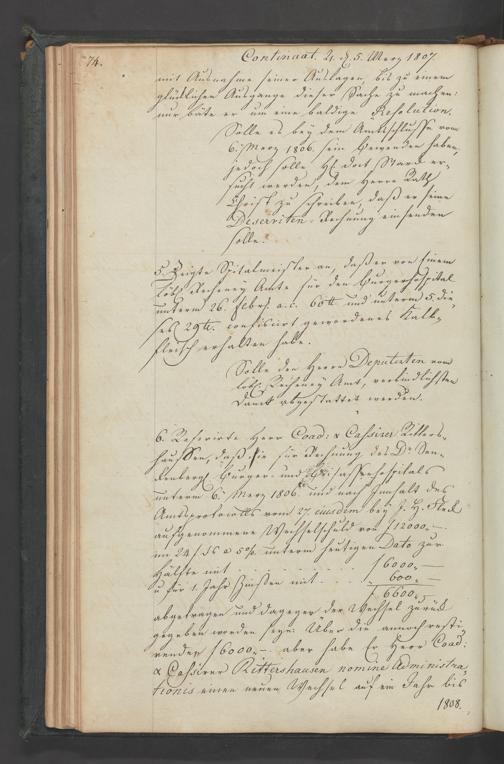 74.
Continuat. 21. d. 5. Merz 1807
mit Ausnahme seiner Auslagen, bis zu einem
glücklichen Ausgange dieser Sache zu machen:
nur bäte er um eine baldige Resolution.
Solle es bey dem Amtsschlusse vom
6. Merz 1806. sein Bewenden haben,
jedoch solle H. Doct. Starck er-
sucht werden, dem Herrn Rath
zu schreiben, daß er seine
Deserviten-Rechnung einsenden
solle.
5. Zeigte Spitalmeister an, daß er von Einem
löbl. Recheney Amte für den Burgerhospital
unterm 26. Febr. a. c. 60 ℔ und unterm 5. die-
ses 29 ℔. confiscirt gewordenes Kalb-
fleisch erhalten habe.
Solle den Herrn Deputirten vom
löbl. Recheney Amt, verbindlichsten
Danck abgestattet werden.
6. Referirte Herr Coad: & Cassirer Ritters-
haussen, daß Sie für Rechnung des Dr. Sen-
ckenberg. Burger- und Beisassenhospitals
unterm 6. Merz 1806. und nach Innhalt des
Amtsprotocolls vom 27. ejusdem bey J. H.
aufgenommene Wechselschuld von f 12000.—
im 24 f Fs a 5 %. unterm heutigen Dato zur
Hälfte mit . . . . . . . . f 6000.—
u für 1. Jahr Zinsen mit . . . 600.—
f 6600.—
abgetragen und dagegen der Wechsel zurück
gegeben worden seye. Über die annoch resti-
renden f 6000.— aber habe Er Herr Coad:
& Cassirer Rittershausen nomine Administra-
tionis einen neuen Wechsel auf ein Jahr bis
1808.